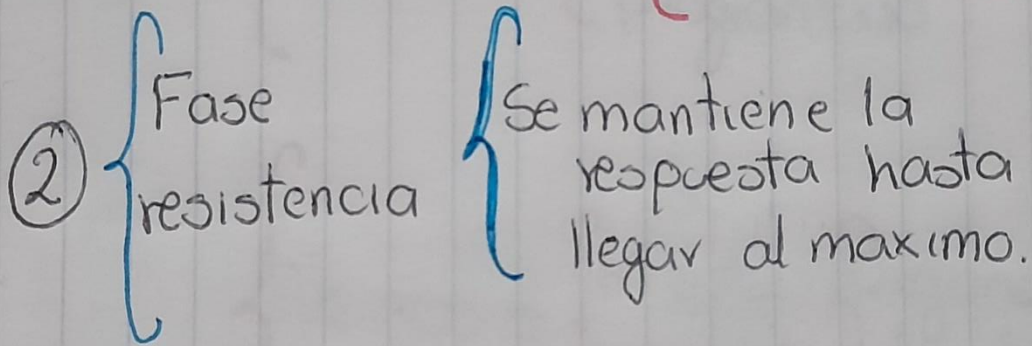 ② Fase
resistencia
Se mantiene la
respuesta hasta
llegar al maximo.